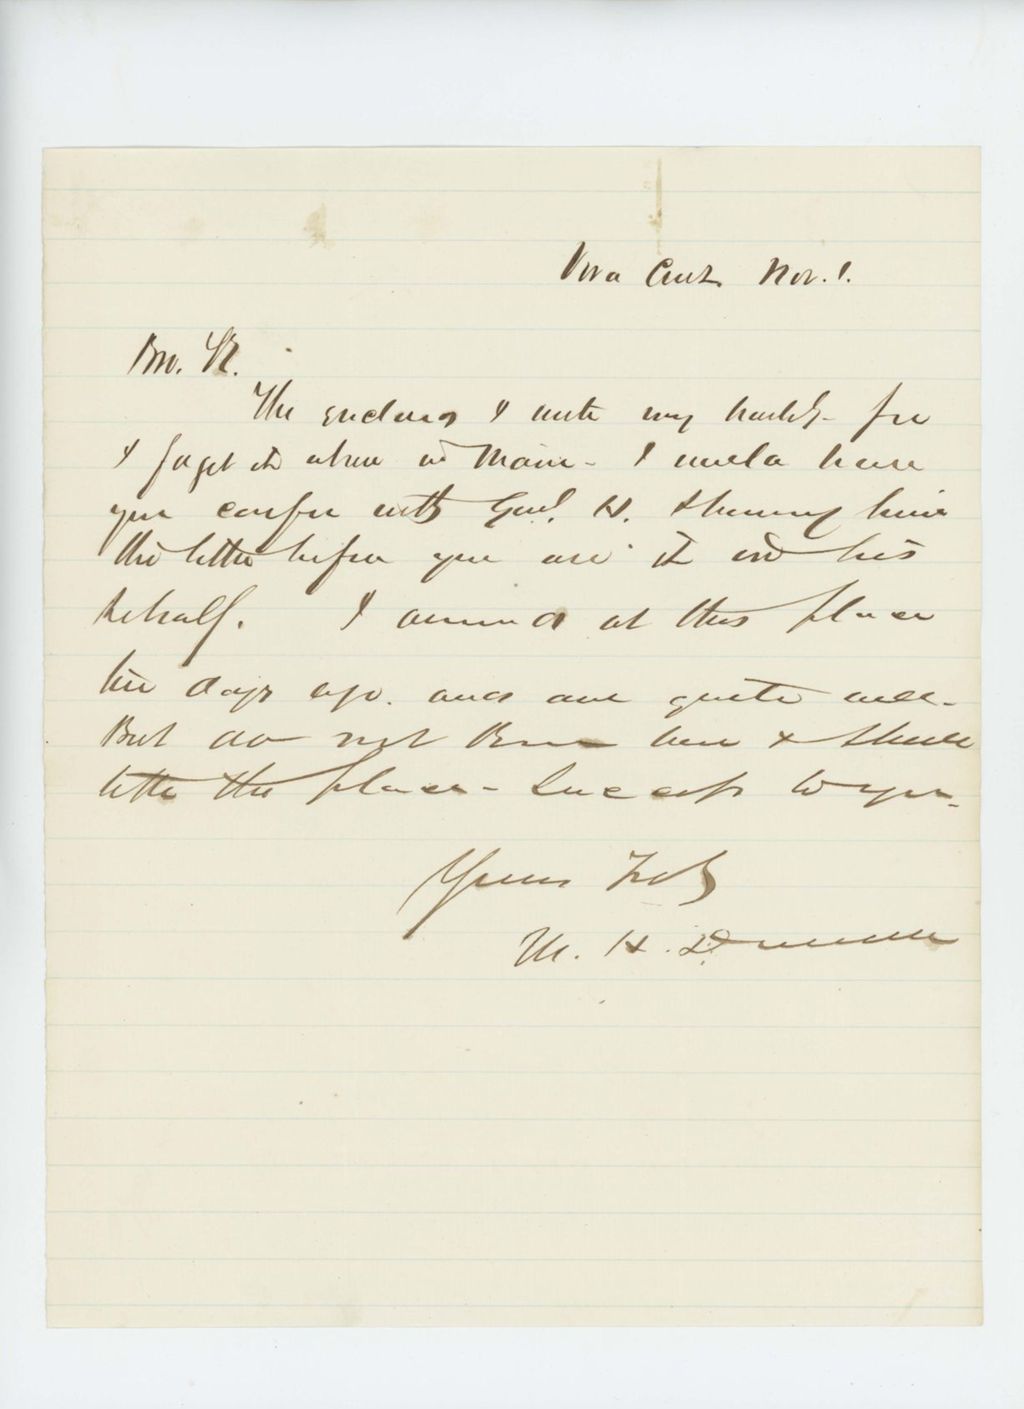 Vera Cruz Nov. 1.
Bro. K.
The enclosed I write very hastily - for
I forgot it when in Maine - I would have
you confer with Genl. H. showing him
the letter before you use it in his
behalf. I arrived at this place
ten days ago. and am quite well -
But do not Know here & shall
the place - Success to you -
Yours Truly
M. H.